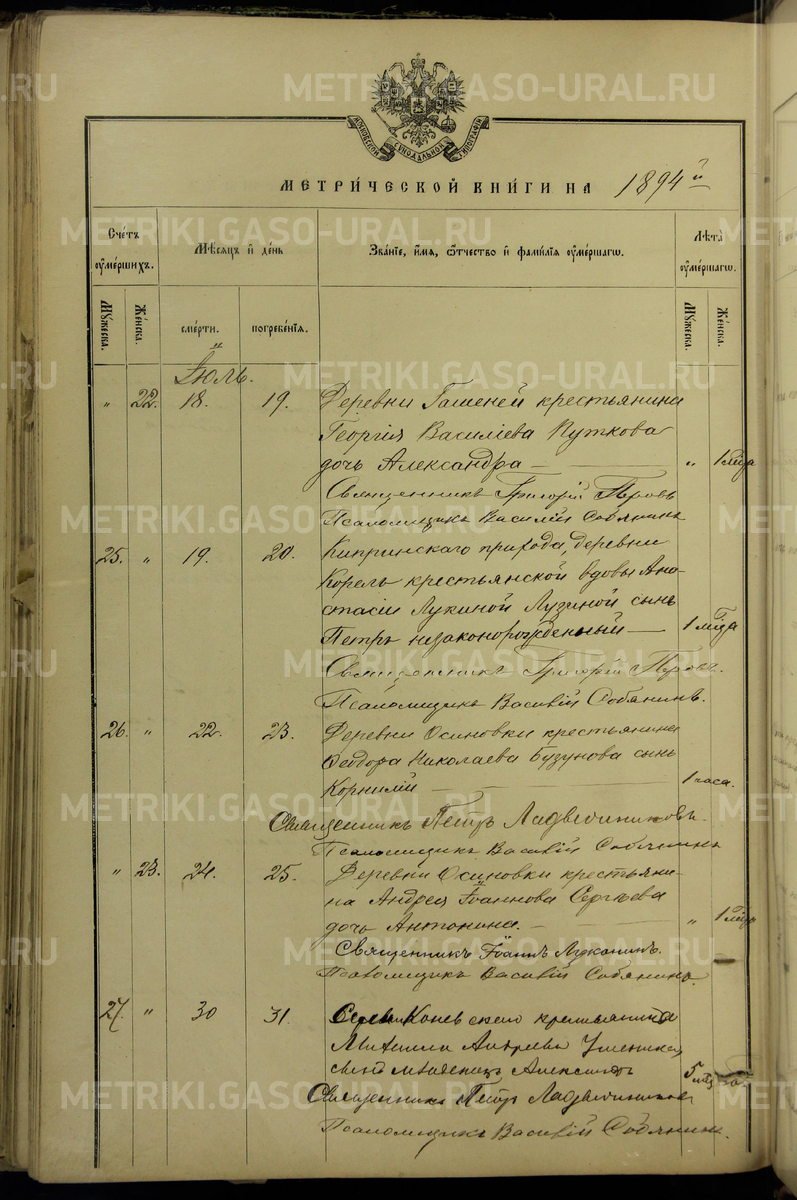 МОСКОВСКОЙ СѴНОДАЛЬНОЙ ТИПОГРАФІИ
МЕТРИ́ЧЕСКОЙ КНИ́ГИ НА 1894й
Сче́тъ оумершихъ.
Мѣсяцъ и де́нь
Зва́ніе, и́мя, ѻ҆́тчество и фами́лія оуме́ршагѡ.
Лѣта̀ оуме́ршагѡ.
Му́жеска.
Же́нска.
сме́рти.
погребе́нїѧ.
Му́жеска.
Же́нска.
Іюль.
" 22. 18. 19. Деревни Гашеней крестьянина
Георгія Василіева Путкова
дочь Александра — " 1 мѣс.
Священникъ Григорій Петровъ
Псаломщикъ Василій Собянинъ
25. " 19. 20. Кипринскаго прихода, деревни
Корелъ крестьянской вдовы Ана-
стасіи Лукиной Лузиной сынъ
Петръ незаконорожденный — 1 года
Священникъ Григорій Петровъ.
Псаломщикъ Василій Собянинъ.
26. " 22. 23. Деревни Осиновки крестьянина
Ѳеодора Николаева Бузунова сынъ
Корнилій — 1 часа.
Священникъ Петръ Ладвещниковъ
Псаломщикъ Василій Собянинъ
" 23. 24. 25. Деревни Осиновки крестьяни-
на Андрея Іоаннова Сергѣева
дочь Антонина. — "
Священникъ Іоаннъ Луканинъ.
Псаломщикъ Василій Собянинъ.
27. " 30 31. Села Коневскаго крестьянина
Михаила Андреева
сынъ младенецъ Александръ 5
Священникъ Петръ
Псаломщикъ Василій Собянинъ.
METRIKI.GASO-URAL.RU